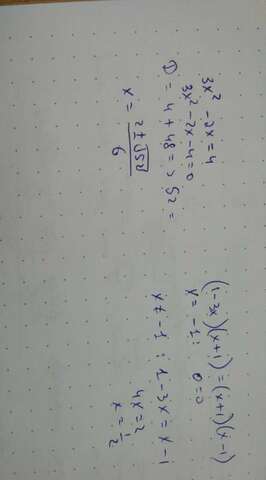 3x² - 3x = 4
3x² - 2x - 4 = 0
D = 4 + 48 = 52 =
x = (2 ± √52)/6
(1-3x)(x+1) = (x+1)(x-1)
x = -1: 0=0
x ≠ -1: 1-3x = x-1
4x=2
x = 1/2